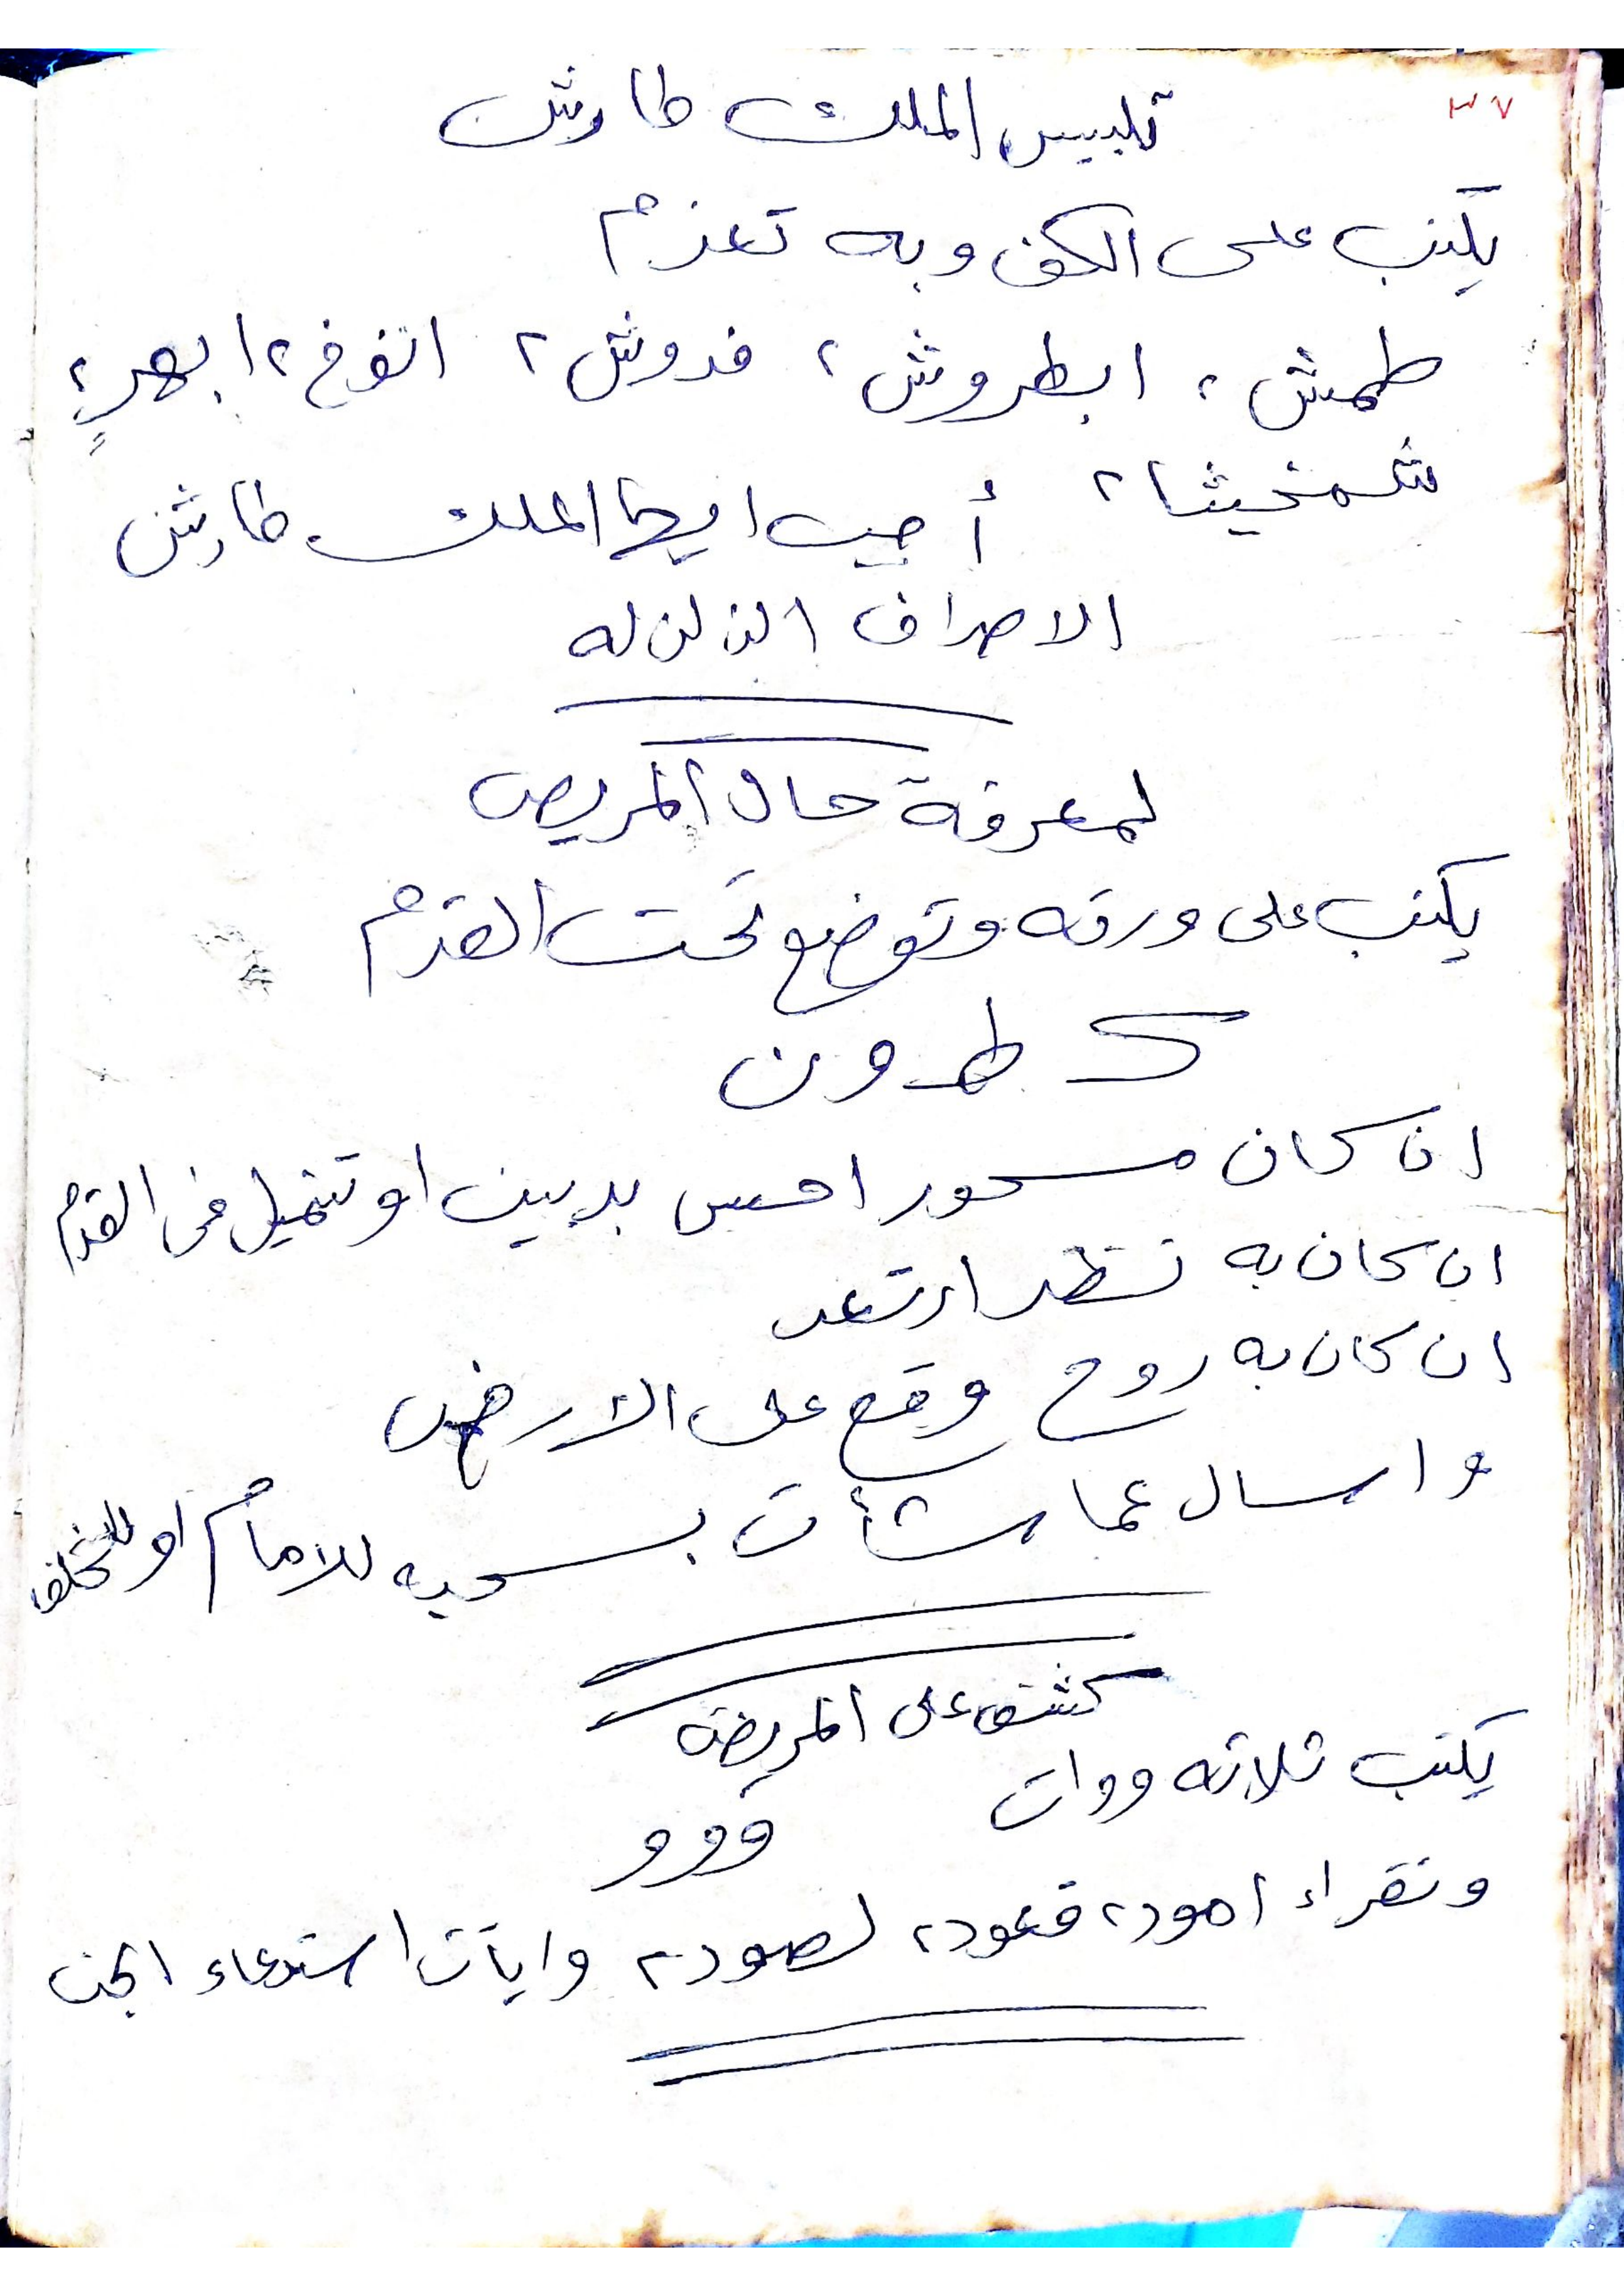 ٣٧
تلبيس الملك طارش
يكتب على الكف وبه تعزم
طمش ٢ ابطروش ٢ فدوش ٢ انفوخ ٢ ابهر ٢
شمخيثا ٢ أجب ايها الملك طارش
الاصراف الزلزله
لمعرفة حال المريض
يكتب على ورقه وتوضع تحت القدم
ك طهون
ان كان مسحور احس بدبيب او تنميل فى القدم
ان كان به نظر ارتعد
ان كان به روح وقع على الارض
واسال عما شأت بسحبه للامام او للخلف
كشف على المريض
يكتب ثلاثه ووات
و و و
وتقراء اهود ٢ قعود ٢ لصود ٢ وايات استدعاء الجن